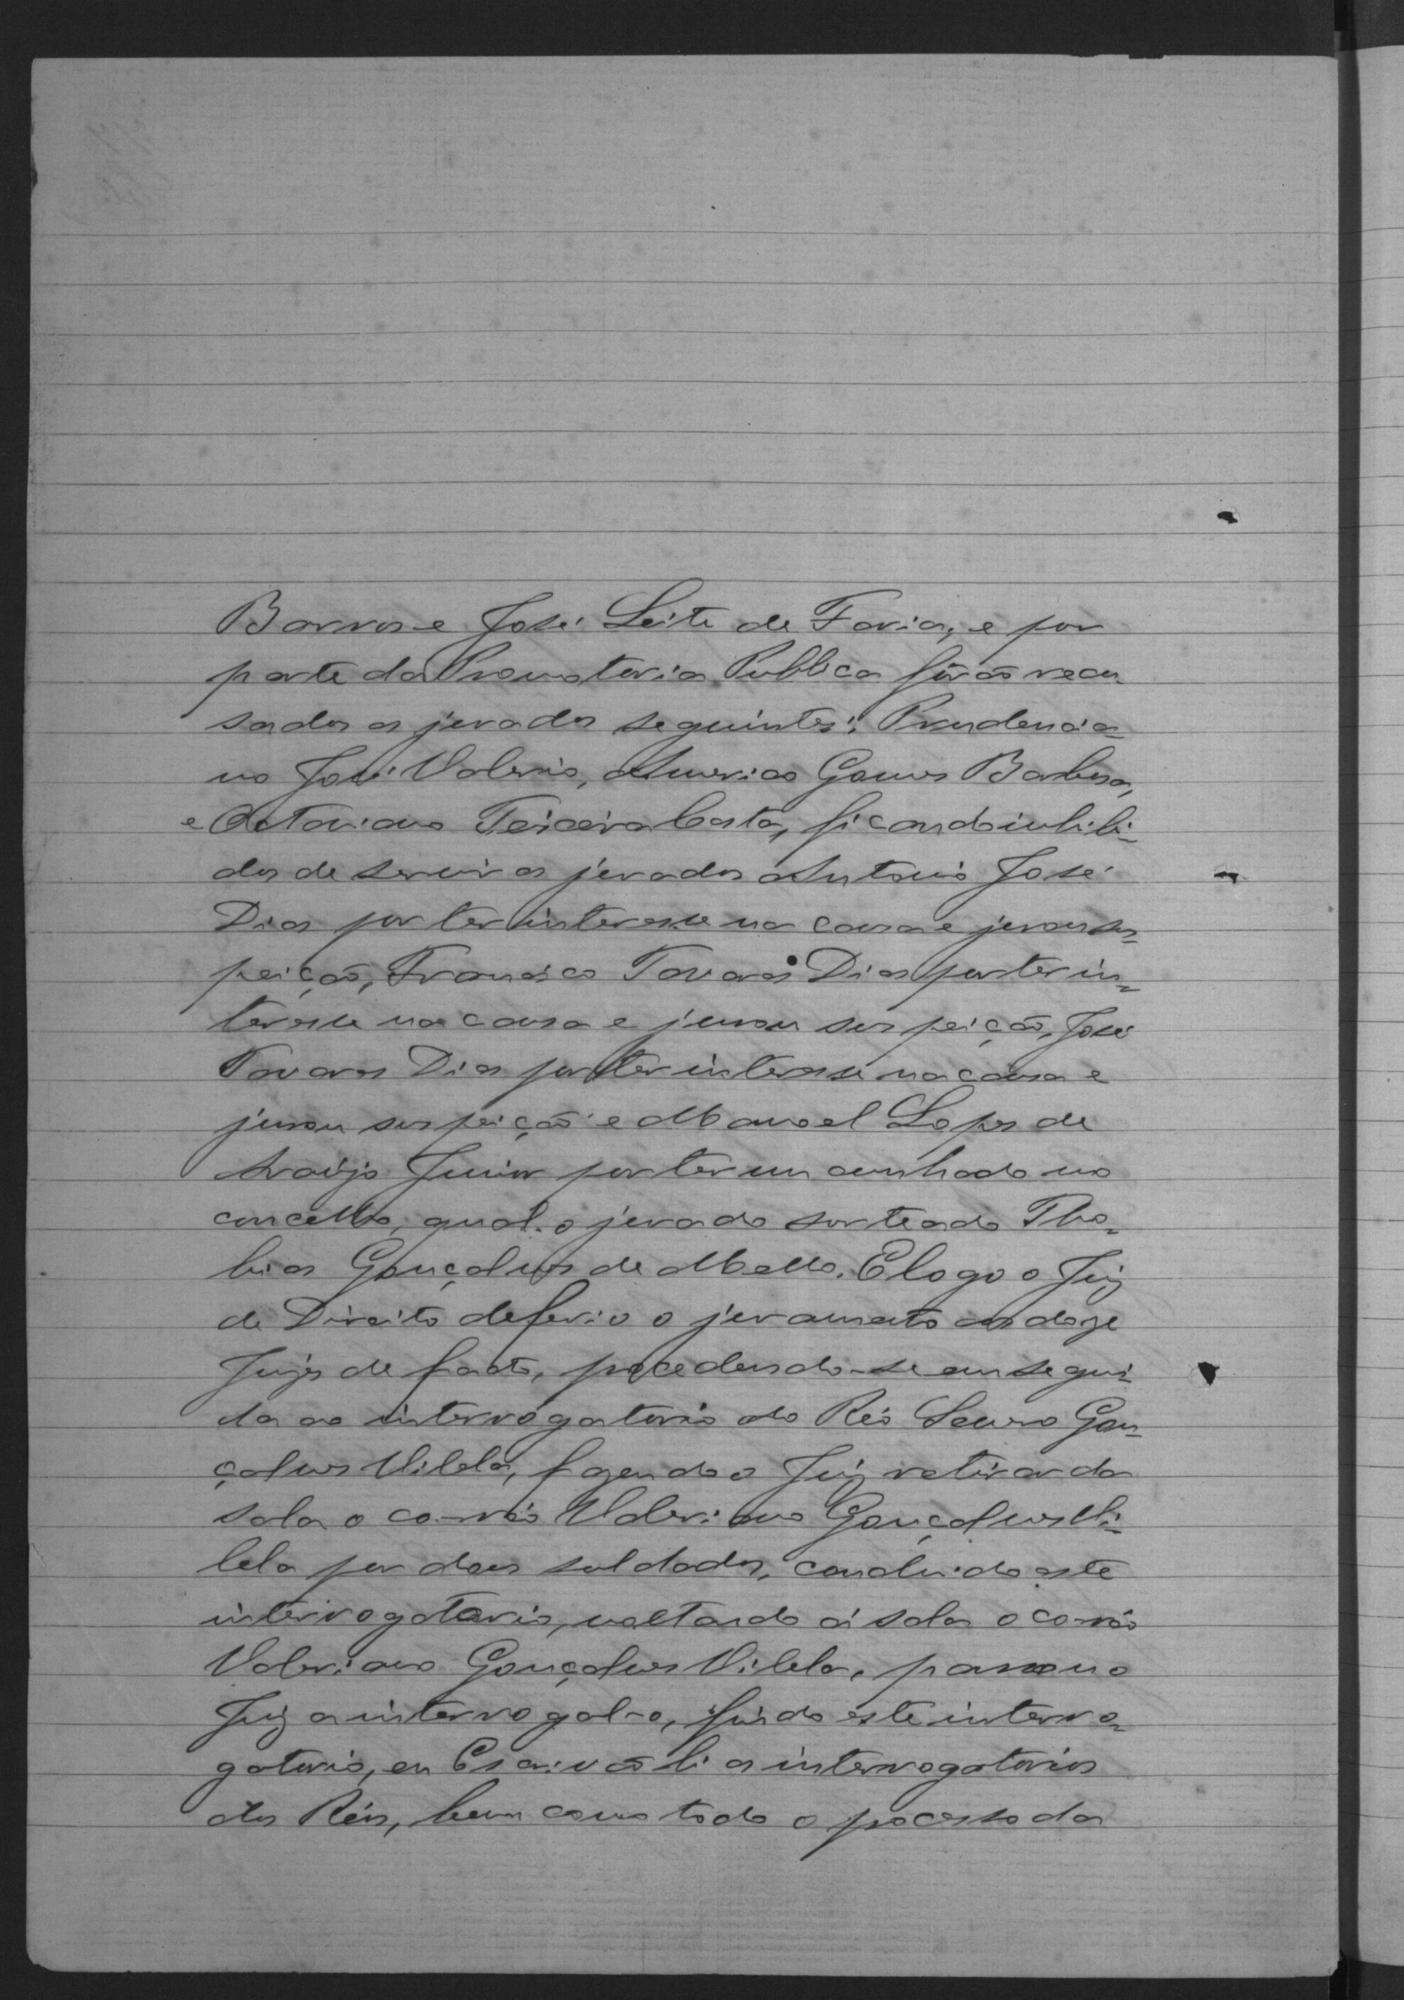 Barros e José Leite de Faria, e por
parte da Promotoria Publica forão recu-
sados os jurados seguintes: Prudencia-
no José Valerio, Americo Gomes Barbosa,
e Octaviano Teixeira Costa, ficando inhibi-
dos de servir os jurados Antonio José
Dias por ter interesse na causa e jurou sus-
peição, Francisco Tavares Dias por ter in-
teresse na causa e jurou suspeição, José
Tavares Dias por ter interesse na causa e
jurou suspeição e Manoel Lopes de
Araújo Junior por ter um cunhado no
concelho, qual o jurado sorteado Tho-
bias Gonçalves de Mello. E logo o Juiz
de Direito deferio o juramento aos doze
Juizes de facto, procedendo-se em segui-
da ao interrogatorio do Réo Lauro Gon-
çalves Vilela, fazendo o Juiz retirar da
sala o co-réo Valeriano Gonçalves Vi-
lela por dous soldados, concluido este
interrogatorio, voltando á sala o co-réo
Valeriano Gonçalves Vilela, passou o
Juiz a interrogal-o, findo este interro-
gatorio, eu Escrivão li os interrogatorios
dos Réos, bem como todo o processo da